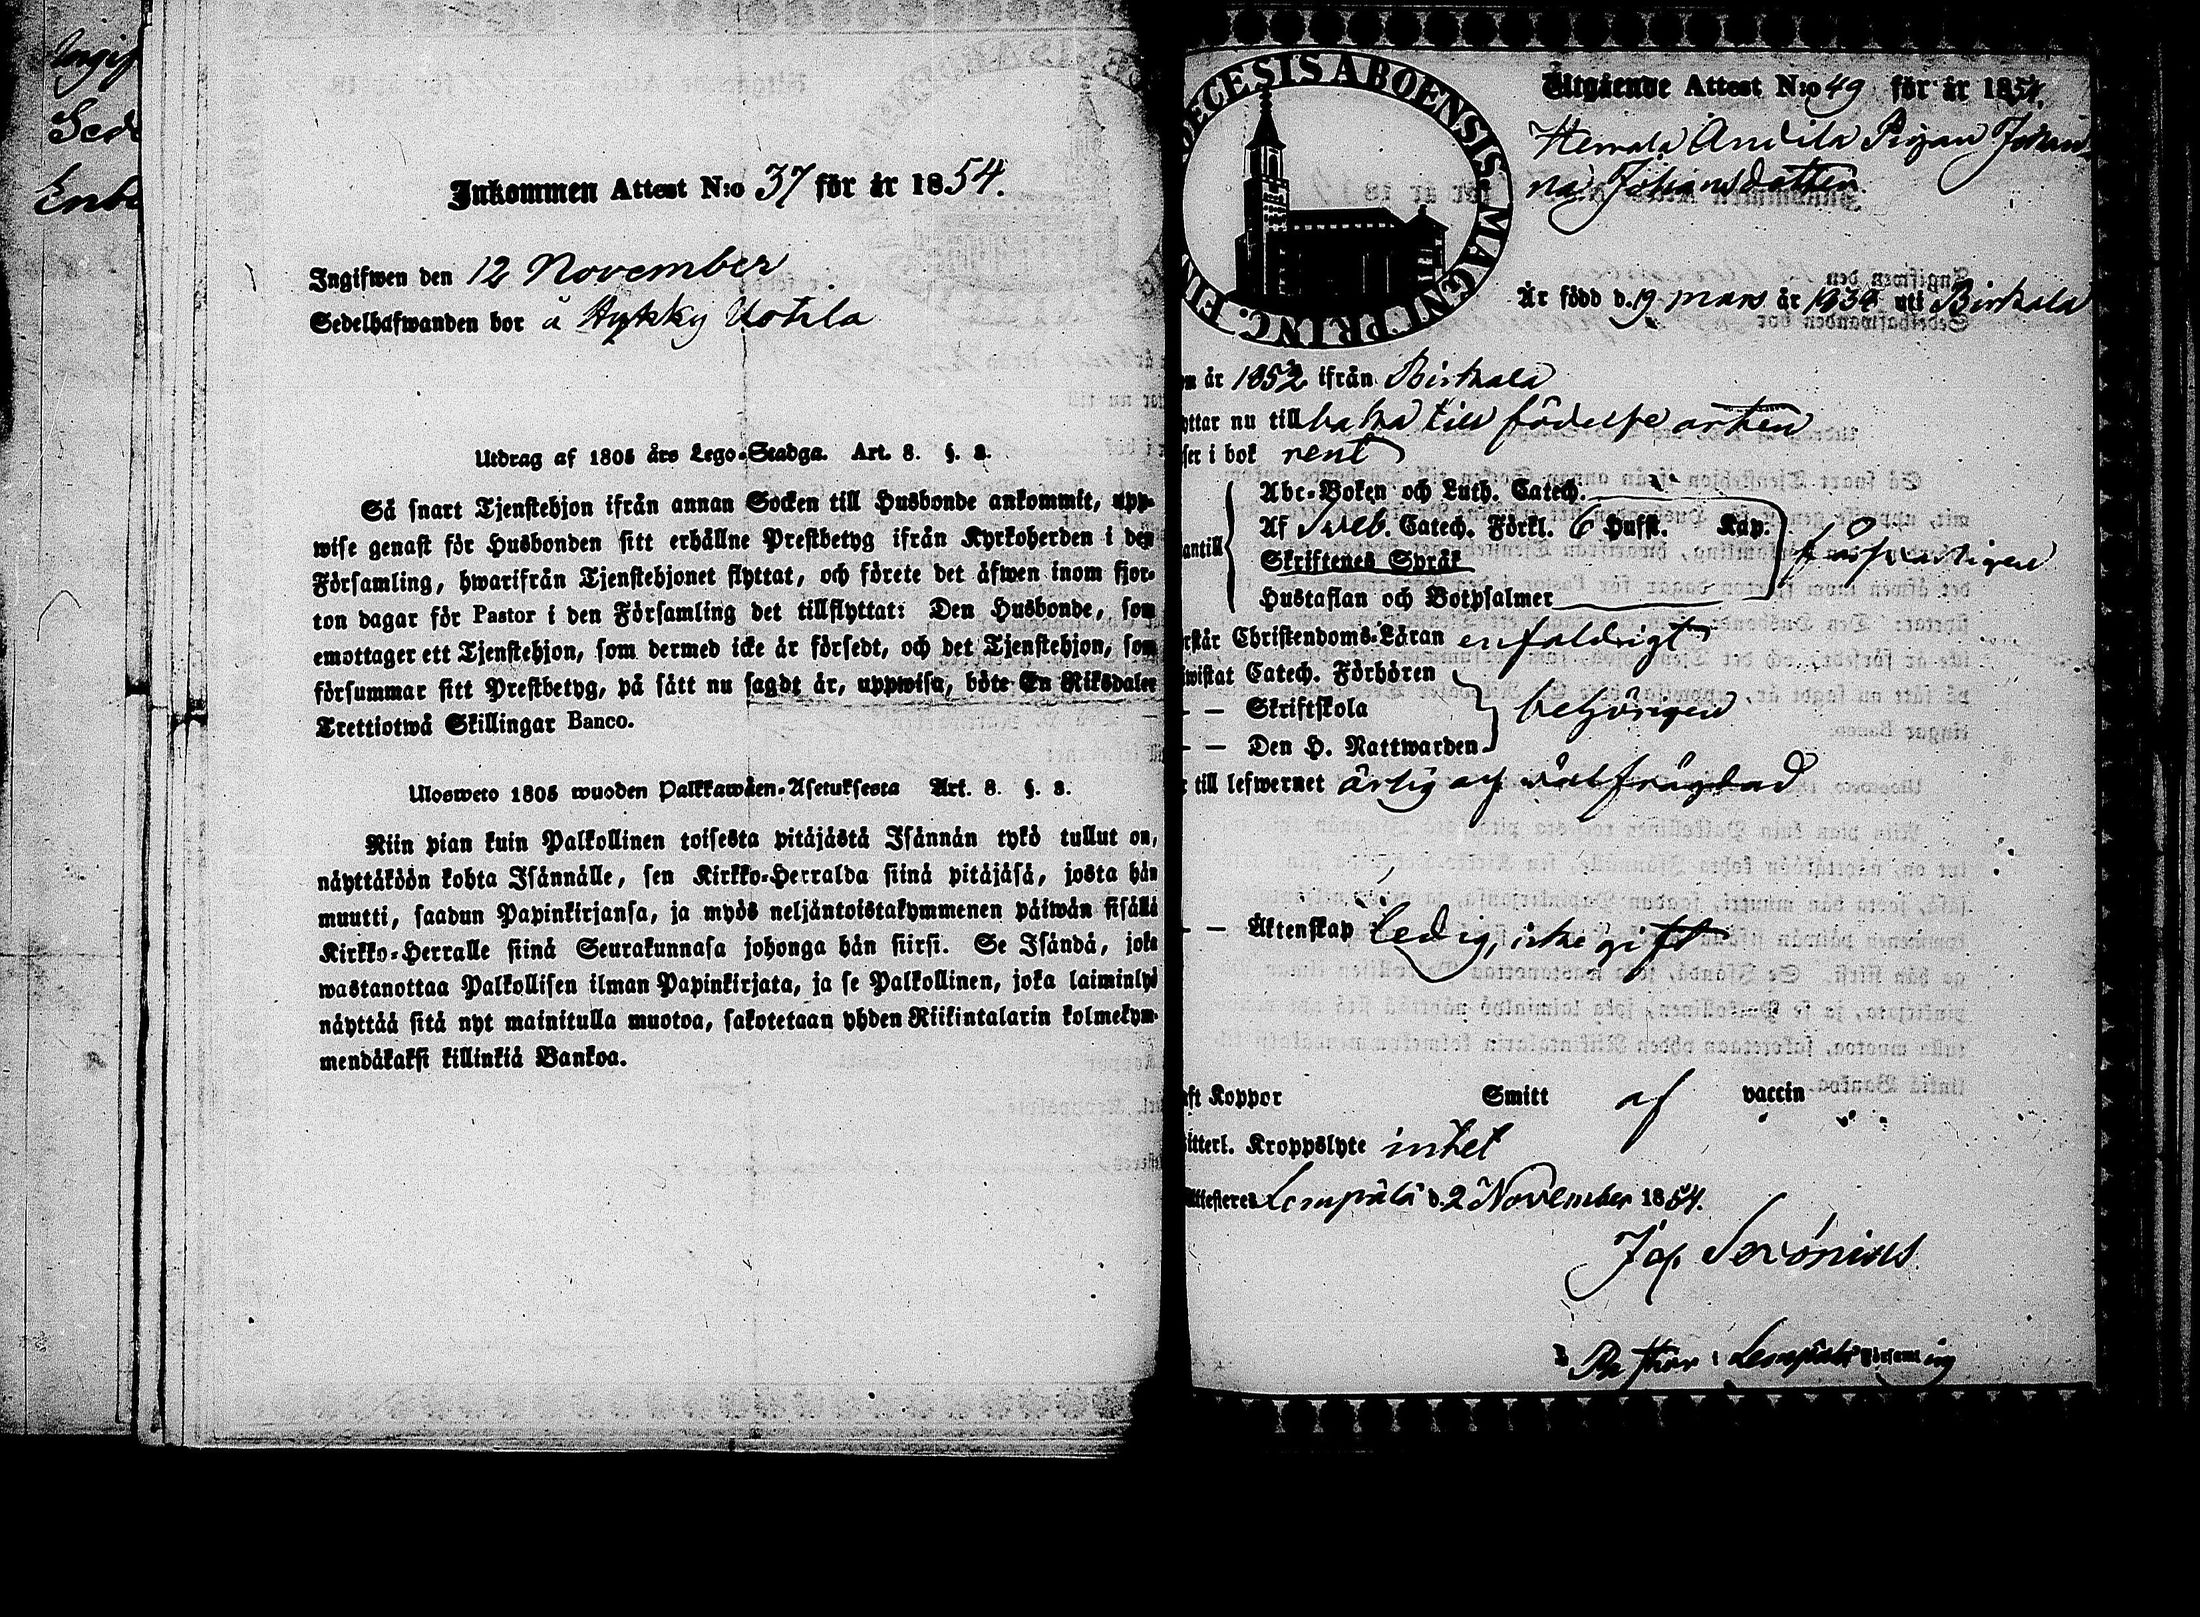 Ingif
Sed
Enb
Inkommen Attest N:o 37 för år 1854.
Ingifwen den 12 November
Sedelhafwanden bor å Hykky Uotila
Utdrag af 1805 års Lego-Stadga. Art. 8. §. 2.
Så snart Tjenstehjon ifrån annan Socken till Husbonde ankommit, upp-
wise genast för Husbonden sitt erhållne Prestbetyg ifrån Kyrkoherden i den
Församling, hwarifrån Tjenstehjonet flyttat, och förete det äfwen inom fjor-
ton dagar för Pastor i den Församling det tillflyttat: Den Husbonde, som
emottager ett Tjenstehjon, som dermed icke är försedt, och det Tjenstehjon, som
försummar sitt Prestbetyg, på sätt nu sagdt är, uppwisa, böte En Riksdaler
Trettiotwå Skillingar Banco.
Ulosweto 1805 wuoden Palkkawäen-Asetuksesta Art. 8. §. 2.
Niin pian kuin Palkollinen toisesta pitäjästä Isännän tykö tullut on,
näyttäköön kohta Isännälle, sen Kirkko-Herralda siinä pitäjäsä, josta hän
muutti, saadun Papinkirjansa, ja myös neljäntoistakymmenen päiwän sisällä
Kirkko-Herralle siinä Seurakunnasa johonga hän siirsi. Se Isändä, joka
wastanottaa Palkollisen ilman Papinkirjata, ja se Palkollinen, joka laiminlyö
näyttää sitä nyt mainitulla muotoa, sakotetaan yhden Riikintalarin kolmekym-
mendäkaksi killinkiä Bankoa.
DECESIS ABOENSIS MAGNI PRINC. FIN
Utgående Attest N:o 49 för år 1854.
Hemala Andila Pigan Johan
na Johansdotter
Är född d. 19 mars år 1834 uti Birkala
år 1852 ifrån Birkala
yttar nu tillbaka till födelse orten
ser i bok rent
Abc-Boken och Luth. Catech.
antill Af Sveb. Catech. Förkl. 6 Hufst. Kap. försvarligen
Skriftenes Språk
Hustaflan och Botpsalmer
rstår Christendoms-Läran enfaldigt
wistat Catech. Förhören
— — Skriftskola behörigen
— — Den H. Nattwarden
r till lefwernet ärlig och välfrägdad
— — Äktenskap ledig, icke gift
aft Koppor Smitt af vaccin
itterl. Kroppslyte intet
Attesteras Lempälä d. 2 November 1854.
Past i Lempälä Församling